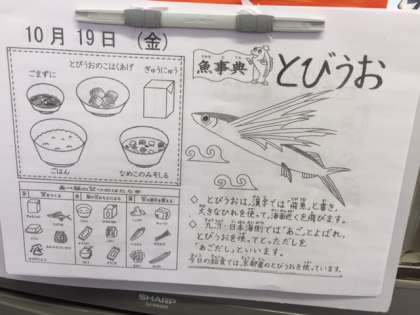 10月19日（金）
とびうおのこはくあげ
ごまずに
ぎゅうにゅう
ごはん
なめこのみそしる
魚事典
とびうお
◇とびうおは、漢字では「飛魚」と書き、
大きなひれを使って、海面近くを飛びます。
◇九州・日本海側では「あご」とよばれ、
とびうおを使ってとっただしを
「あごだし」といいます。
今日の給食では、京都産のとびうおを使っています。
SHARP